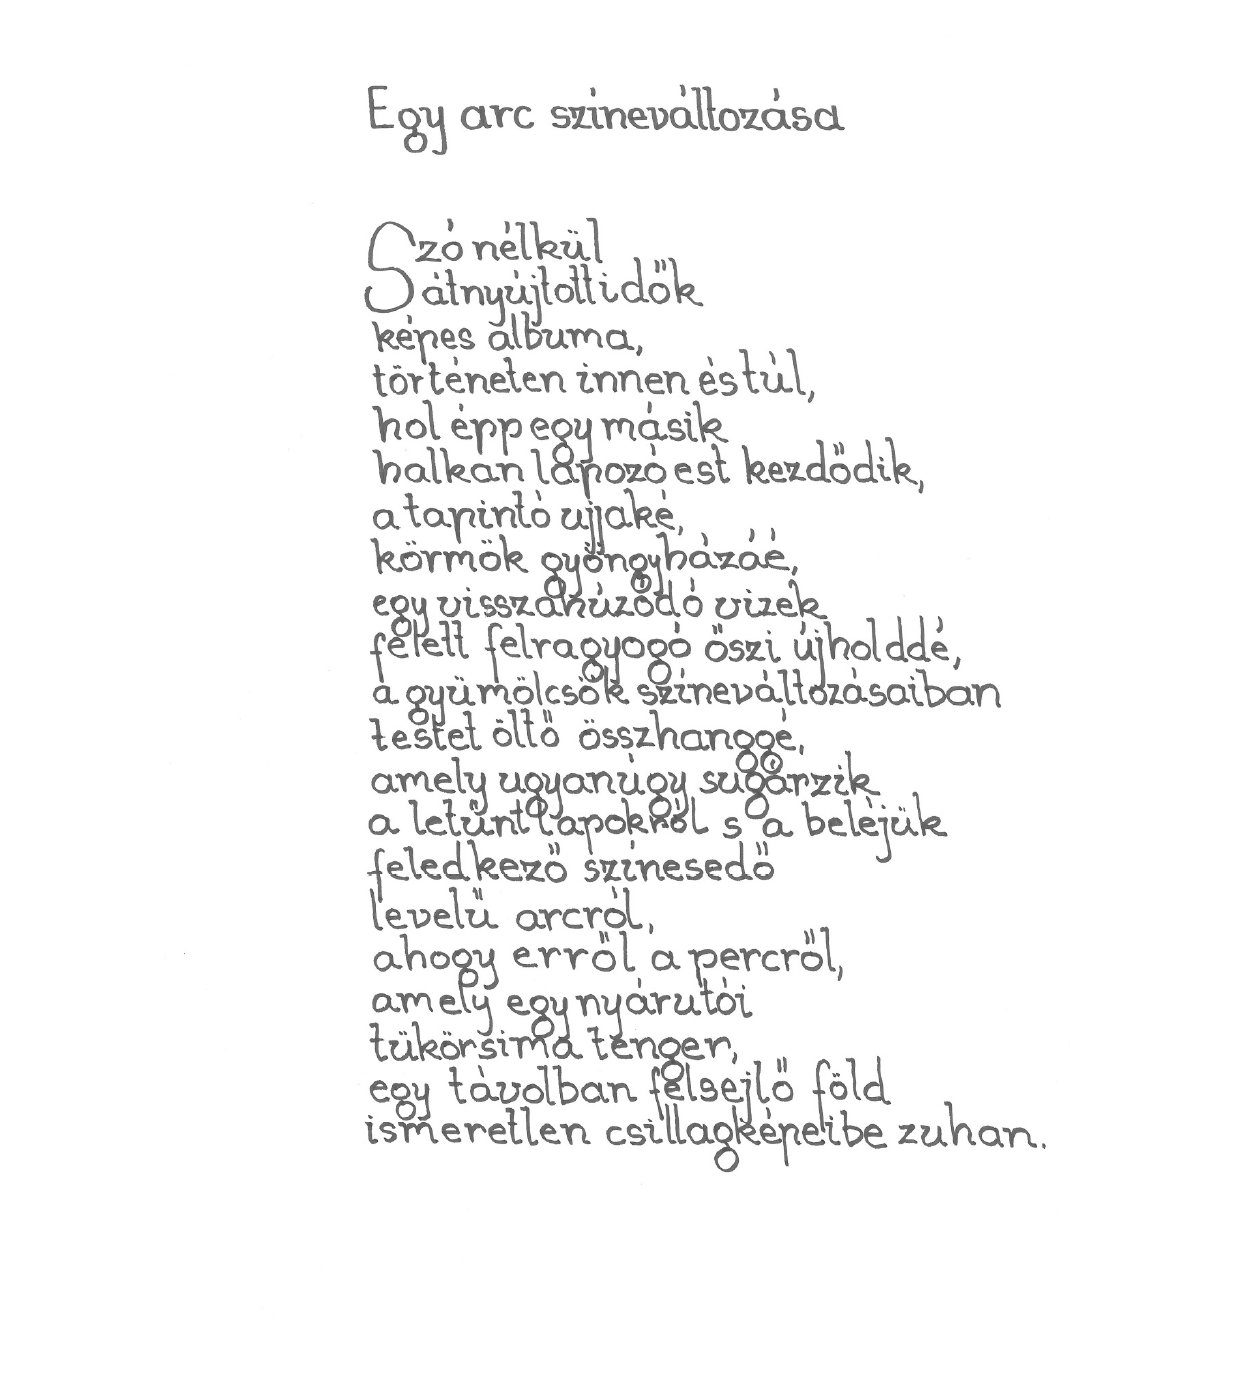 Egy arc színeváltozása
Szó nélkül
átnyújtott idők
képes albuma,
történeten innen és túl,
hol épp egy másik
halkan lapozó est kezdődik,
a tapintó ujjaké,
körmök gyöngyházáé,
egy visszahúzódó vizek
felett felragyogó őszi újholddé,
a gyümölcsök színeváltozásaiban
testet öltő összhanggé,
amely ugyanúgy sugárzik
a letűnt lapokról s a beléjük
feledkező színesedő
levelű arcról,
ahogy erről a percről,
amely egy nyárutói
tükörsima tenger,
egy távolban felsejlő föld
ismeretlen csillagképeibe zuhan.